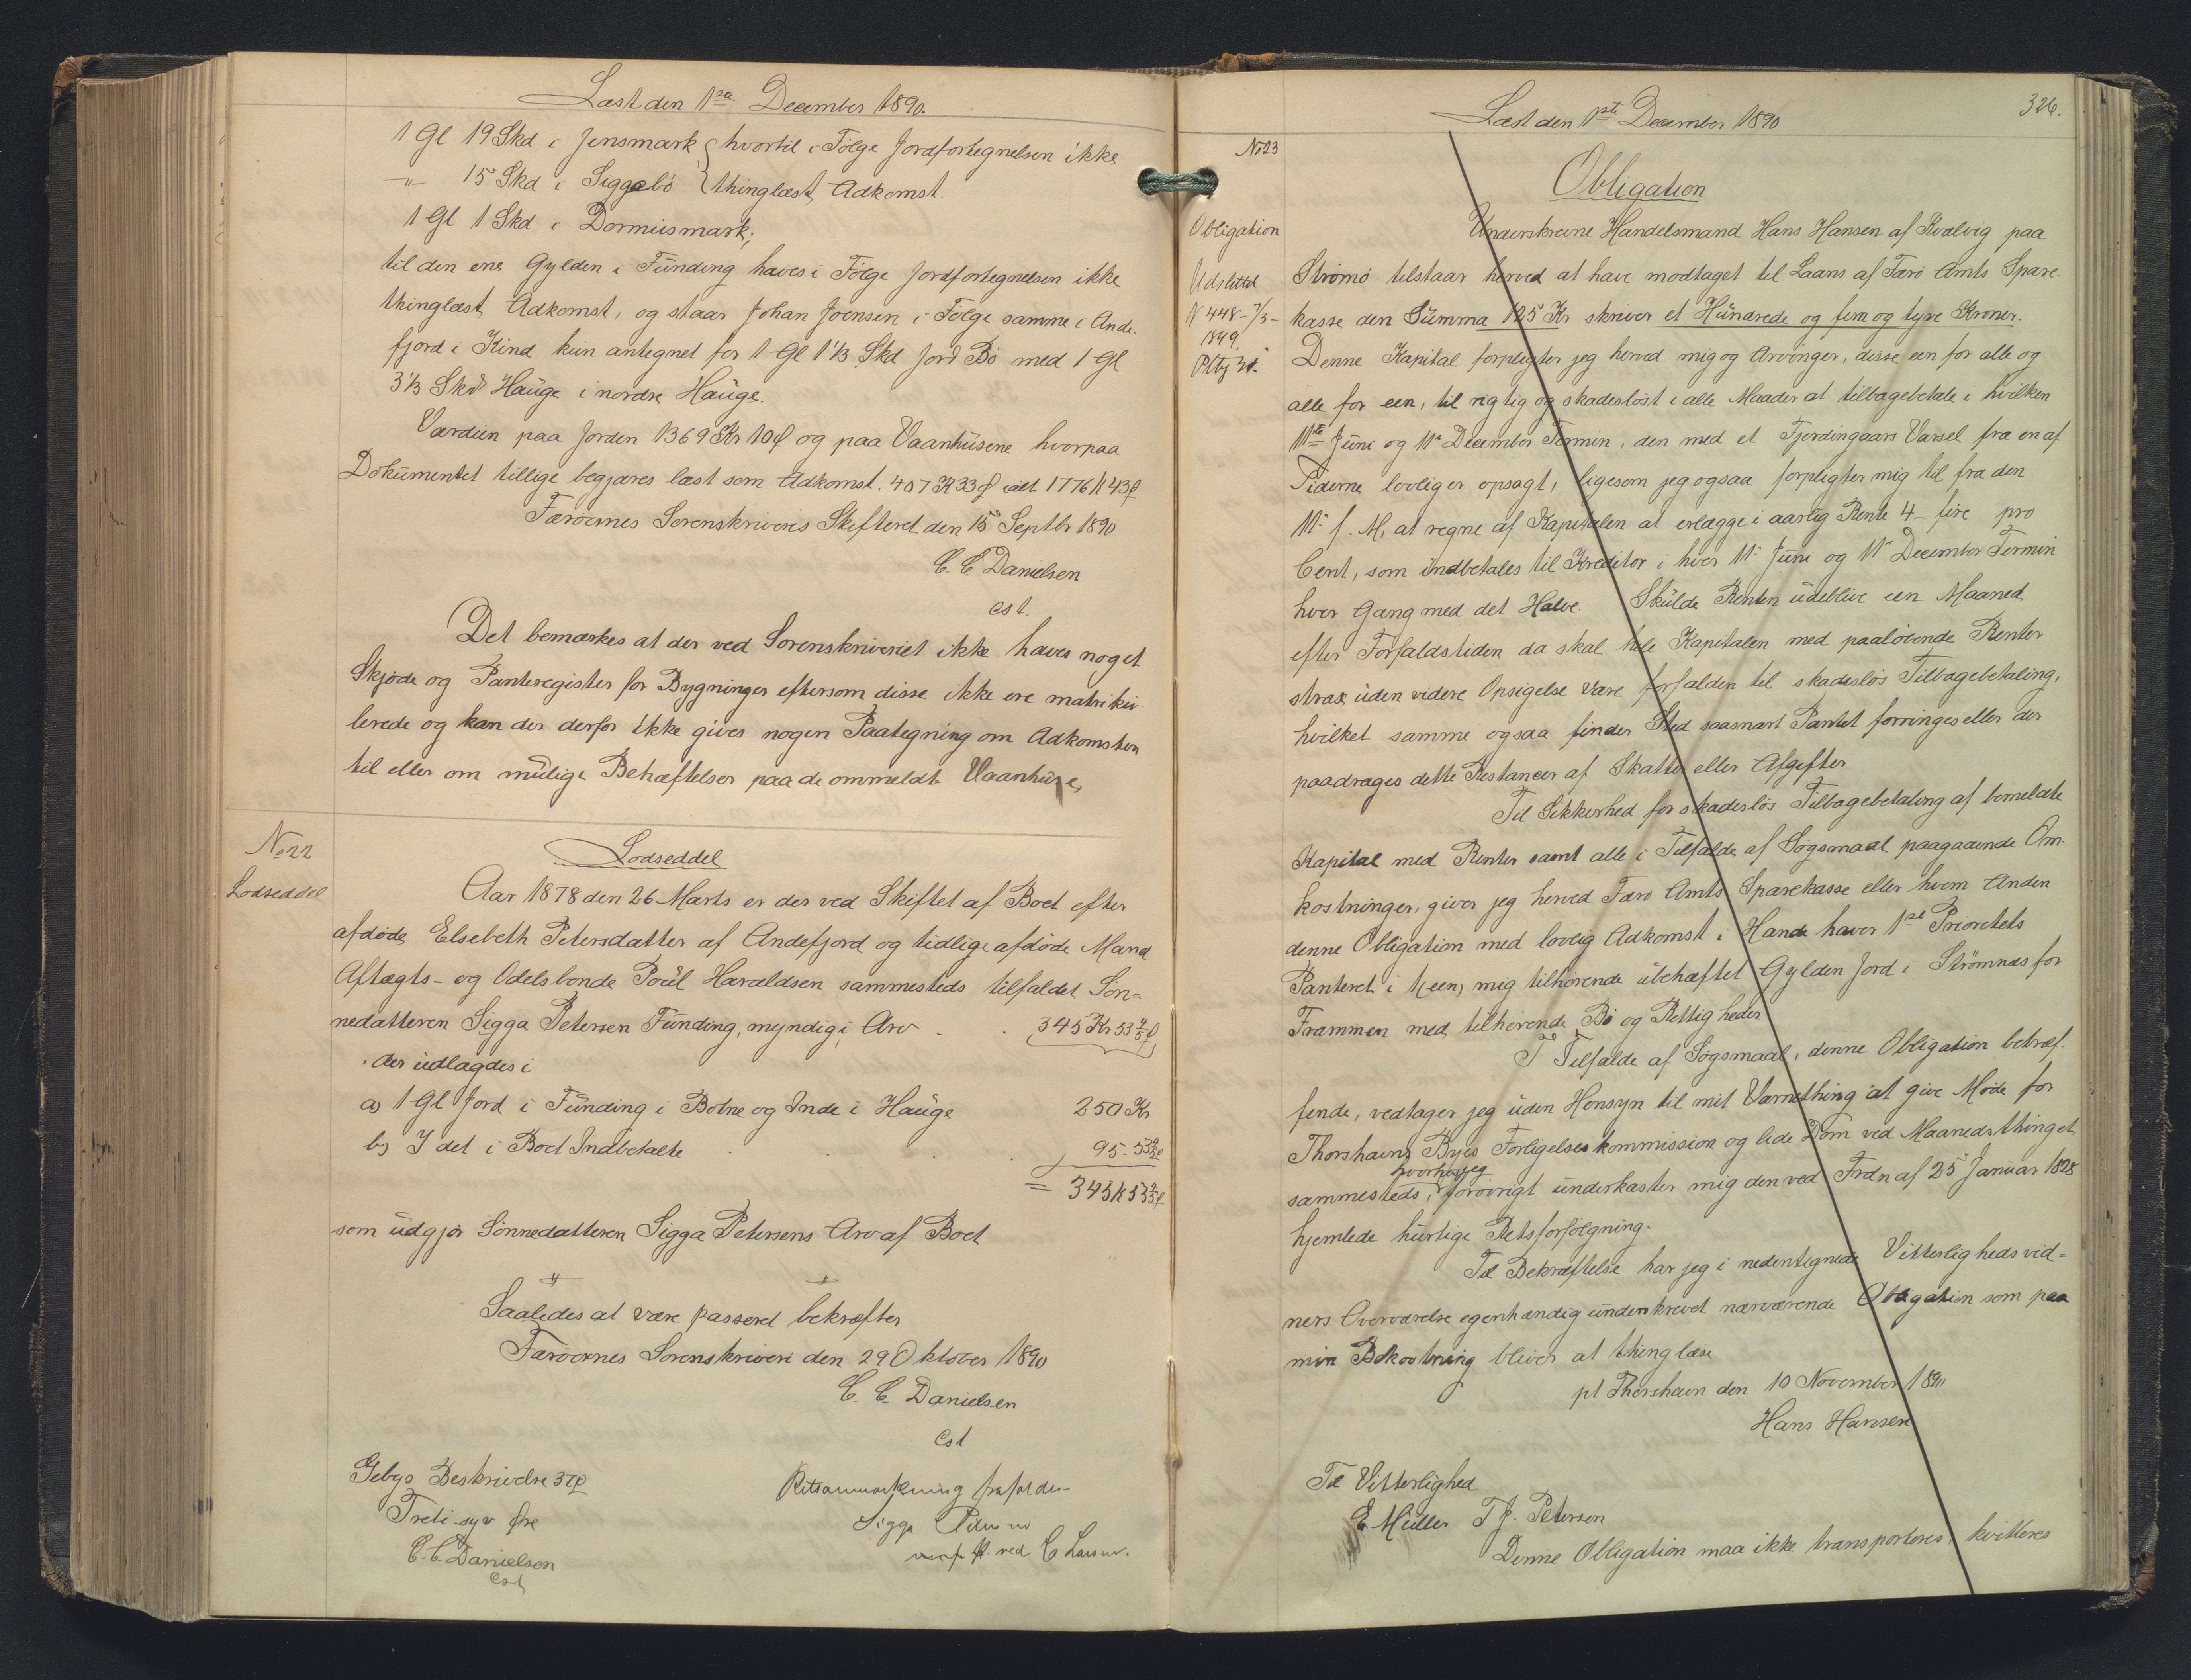 Læst den 1ste December 1890.
1 Gl 19 Skd i Jensmark { hvortil i Følge Jordfortegnelsen ikke
-"- 15 Skd i Siggebö { thinglæst Adkomst.
1 Gl 1 Skd i Dormiismark;
til den ene Gylden i Funding haves i Følge Jordfortegnelsen ikke
thinglæst Adkomst, og staar Johan Joensen i Følge samme i Ande-
fjord i Kind kun antegnet for 1 Gl 1 1/3 Skd Jord Bö med 1 Gl
3 1/3 Skd Hauge i nordre Hauge.
Værdien paa Jorden 1369 Kr 10 ø og paa Vaanhusene hvorpaa
Dokumentet tillige begjæres læst som Adkomst. 407 Kr 33 ø ialt 1776 Kr 43 ø
Færöernes Sorenskriveris Skifteret den 15 Septbr 1890
C. C. Danielsen
cst.
Det bemærkes at der ved Sorenskriveriet ikke haves noget
Skjöde og Panteregister for Bygninger eftersom disse ikke ere matriku
lerede og kan der derfor ikke gives nogen Paategning om Adkomsten
til eller om mulige Behæftelser paa de ommeldte Vaanhuse,
No 22
Lodseddel
Lodseddel
Aar 1878 den 26 Marts er der ved Skiftet af Boet efter
afdöde Elsebeth Petersdatter af Andefjord og tidlige afdöde Mand
Aftægts- og Odelsbonde Poul Haraldsen sammesteds tilfaldet Sön=
nedatteren Sigga Petersen Funding, myndig, i Arv . . 345 Kr 53 4/5 ø
der udlagdes i
a) 1 Gl Jord i Funding i Botne og Inde i Hauge 250 Kr
b) I det i Boet Indbetalte . . . 95 - 53 4/5 ø
= 345 K 53 4/5 ø
som udgjör Sönnedatteren Sigga Petersens Arv af Boet
Saaledes at være passeret bekræfter
Færöernes Sorenskriveri den 29 Oktober 1890
C. C. Danielsen
cst
Gebyr Beskrivelse 37 ø
Treti syv Øre
C. C. Danielsen
cst
Retsanmærkning frafaldes
Sigga Petersen
ved C Larsen.
326.
Læst den 1ste December 1890
No 23
Obligation
Obligation
Udslettet
N 448 - 7/3 -
1849.
Underskrevne Handelsmand Hans Hansen af Kvalvig paa
Strömö tilstaar herved at have modtaget til Laans af Færö Amts Spare-
kasse den Summa 125 Kr skriver et Hundrede og fem og tyve Kroner.
Denne Kapital forpligter jeg herved mig og Arvinger, disse een for alle og
alle for een, til rigtig og skadeslöst i alle Maader at tilbagebetale i hvilken
11te Juni og 11te December Termin, den med et Fjerdingaars Varsel fra en af
Siderne lovlig er opsagt, ligesom jeg ogsaa forpligter mig til fra den
11te f. M. at regne af Kapitalen at erlægge i aarlig Rente 4 - fire pro
Cent, som indbetales til Kreditor i hver 11te Juni og 11te December Termin
hver Gang med det Halve. Skulde Renten udeblive een Maaned
efter Forfaldstiden da skal hele Kapitalen med paalöbende Renter
strax uden videre Opsigelse være forfalden til skadeslös Tilbagebetaling,
hvilket samme ogsaa finder Sted saasnart Pantet forringes eller der
paadrages dette Restancer af Skatter eller Afgifter
Til Sikkerhed for skadeslös Tilbagebetaling af bemeldte
Kapital med Renter samt alle i Tilfælde af Sogsmaal paagaaende Om-
kostninger, giver jeg herved Færö Amts Sparekasse eller hvem Anden
denne Obligation med lovlig Adkomst i Hænde haver 1ste Prioritets
Panteret i 1 (een) mig tilhörende ubehæftet Gylden Jord i Strömnæs for
Frammen med tilhörende Bö og Rettigheder
I Tilfælde af Sogsmaal, denne Obligation betræf-
fende, vedtager jeg uden Hensyn til mit Værnething at give Möde for
Thorshavns Byes Forligelseskommission og lide Dom ved Maanedsthinget
sammesteds, hvorhos jeg forövrigt underkaster mig den ved Frdn af 25 Januar 1828
hjemlede hurtige Retsforfölgning.
Til Bekræftelse har jeg i nedentegnede Vitterlighedsvid=
ners Overværelse egenhændig underskrevet nærværende Obligation som paa
min Bekostning bliver at thinglæse
pt Thorshavn den 10 November 1890
Hans Hansen
Til Vitterlighed
E. Müller T. J. Petersen
Denne Obligation maa ikke transporteres, kvitteres